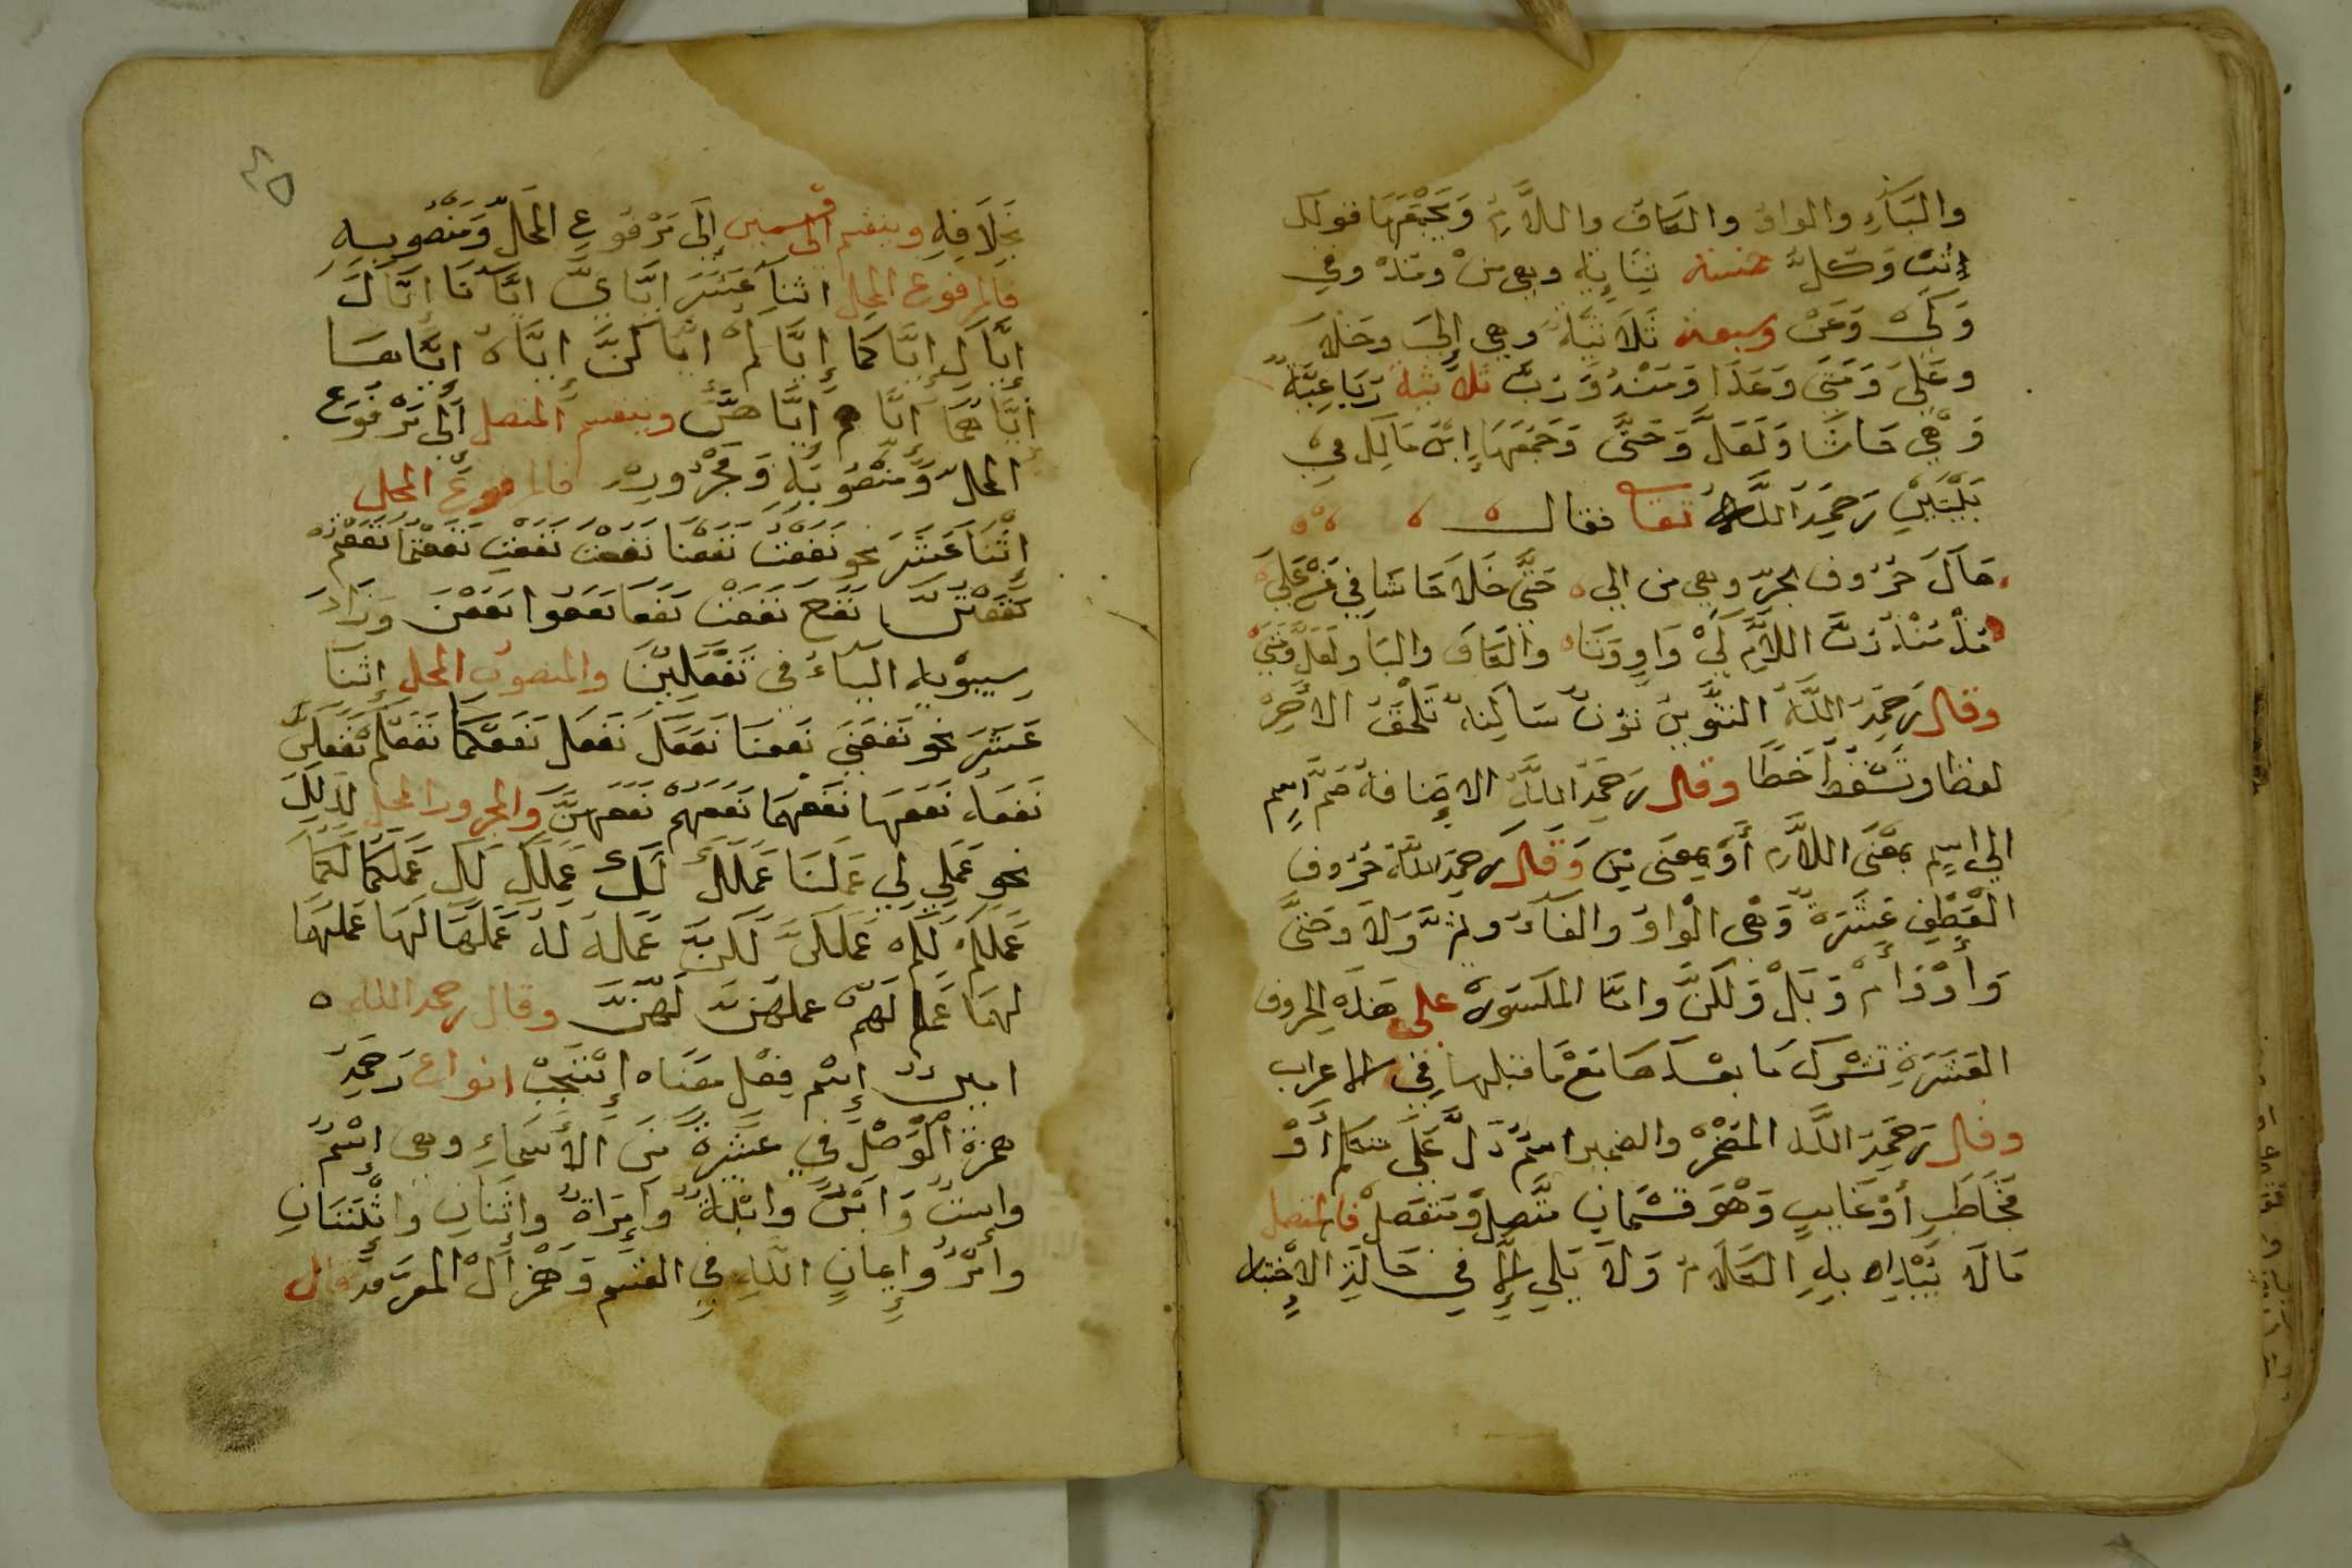 والبَآءِ والواوُ والكافُ واللَّامُ وَيَجْمَعُهَا قولك
وَكلَّ خمسة ثِنَائِيَّه وهي مِنْ ومُذْ وفي
وَكَيْ وَعَنْ وسبعة ثَلَاثِيَّة وهي إِلَى وخَلَا
وعَلَى وَمَتَى وَعَدَا وَمُنْذُ وَرُبَّ ثلاثة رُبَاعِيَّةٌ
وَهْيَ حَاشَا وَلَعَلَّ وَحَتَّى وَجَمَعَهَا ابْنُ مَالِك في
بَيْتَيْنِ رَحِمَهُ اللَّهُ تعا فقال
هَاكَ حُرُوف الجرِّ وهي من الى حَتَّى خَلَا حَاشَا فِي عَنْ عَلَى
مُذْ مُنْذُ رُبَّ اللَّامُ كَيْ وَاو وَتَاء والكَاف والبَا ولَعَلَّ وَمَتَى
وقال رَحِمَهُ اللَّهُ التَّنْوِينُ نُونٌ سَاكِنَةٌ تَلْحَقُ الآخِرَ
لفظا وتَسْقُطُ خَطًّا وقال رَحِمَهُ اللَّهُ الاضَافة ضَمُّ اسِمٍ
الى اسِمٍ بمَعْنَى اللَّام أَوْ بمِعنَى مِنْ وَقَالَ رحمَهُ اللَّهُ حُرُوف
الْعَطْفِ عَشَرَةٌ وَهْيَ الْوَاوُ والفَآءُ وثمَّ وَلَا وحَتَّى
وَأَوْ وَأَمْ وَبَلْ وَلَكِنْ وامَّا المكسَورة على هَذِهِ الحروف
العَشَرَةِ تشْرِكُ مَا بعْدَهَا مَعْ مَا قبلها فِي الاعراب
وقال رَحِمَهُ اللَّهُ المُضْمَرُ والضمير اسْمٌ دَلَّ عَلَى متكلم أَوْ
مُخَاطَبٍ أَوْ غَايبٍ وَهْوَ قِسْمَانِ مُتَّصِلٌ وَمُنْفَصِلْ فالمتصل
مَا لَا يُبْدَاُ بِهِ الكَلَامُ وَلَا يَلِي إِلَّا فِي حَالَةِ الاخْتِيار
بِخِلَافِهِ وينقسم الى قسمين إِلَى مَرْفُوعِ المَحَلِّ وَمَنْصُوبِهِ
فالمرفوع المحل اثنا عَشَرَ ايَّايَ ايَّانَا إِيَّاكَ
إِيَّاكِ إِيَّاكُمَا إِيَّاكُمْ ايَّاكُنَّ ايَّاهُ ايَّاهَا
إِيَّاهُمَا إِيَّاهُمْ إِيَّاهُنَّ وينقسم المتصل إلى مَرْفُوع
المَحلِّ وَمَنْصُوبِهِ وَمَجْرُورِهِ فالمرفوع المحل
إِثْنَا عَشَرَ نحو نَفَعْتُ نَفَعْنَا نَفَعْتَ نَفَعْتِ نَفَعْتُمَا نَفَعْتُمْ
نَفَعْتُنَّ نَفَعَ نَفَعَتْ نَفَعَا نَفَعُوا نَفَعْنَ وَزَادَ
سِيبَوْيهِ اليَاءُ في تَفْعَلِينَ والمنصوب المحل إثنَا
عَشَرَ نحو نَفَعَنِي نَفَعَنَا نَفَعَكَ نَفَعَكِ نَفَعَكُمَا نَفَعَكُمْ نَفَعَكُنَّ
نَفَعَهُ نَفَعَهَا نَفَعَهُمَا نَفَعَهُمْ نَفَعَهُنَّ والمجرور المحل كَذلِكَ
نحو عَمَلِي لِي عَمَلنَا عَمَلكَ لَكَ عَمَلكِ لَكِ عَمَلكُمَا لَكُمَا
عَمَلكُمْ لَكُمْ عَمَلكُنَّ لَكُنَّ عَمَلهُ لَهُ عَمَلهَا لَهَا عَمَلهُمَا
لهُمَا عَمَلهُمْ لَهُمْ عملهُنَّ لَهُنَّ وقال رحمه الله
امين إِسْم فِعْل مَعْنَاه إِسْتَجِبْ انواع رَحِمَهُ
همزة الْوَصْلِ فِي عَشَرَةٌ مِنَ الأَسْمَاءِ وهي إِسْمٌ
وإستٌ وَابْنٌ وابْنَةٌ وَامْرَاةٌ وإثنَانِ واثْنَتَانِ
وامْرُؤٌ وإيمانِ اللهِ فِي القسم وَهَمْزَ الْ المعَرِّفَة قال